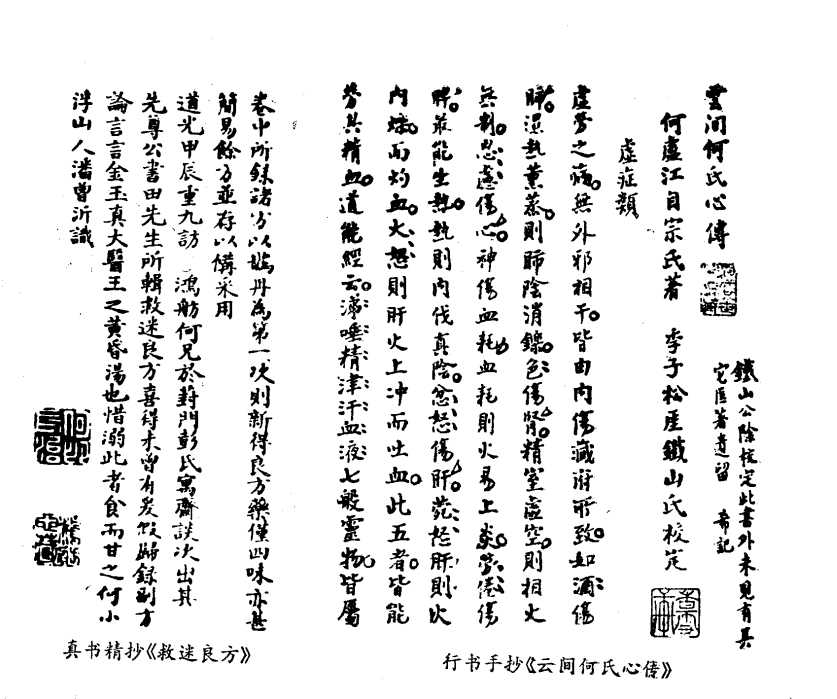 雲间何氏心傳
何盧江自宗氏著　季子松崖鐵山氏校定
鐵山公除核定此書外未見有其
它医著遺留　希記
虛症類
虛勞之病。無外邪相干。皆由内傷藏府所致。如酒傷
肺。濕熱薰蒸。則肺陰消鑠。色傷腎。精室虛空。則相火
無制。思慮傷心。神傷血耗。血耗則火易上炎。勞倦傷
脾。最能生熱。熱則内伐真陰。忿怒傷肝。菀怒肝則火
内熾而灼血。大怒則肝火上冲而吐血。此五者。皆能
勞其精血。道能經云。涕唾精津汗血液。七般靈物皆屬
卷中所錄諸方以　丹為第一次則新得良方藥僅四味亦甚
簡易餘方並存以備采用
道光甲辰重九訪　鴻舫何兄於葑門彭氏寓齋談次出其
先尊公書田先生所輯救迷良方喜得未曾有爰假歸錄副方
論言言金玉真大醫王之黄昏湯也惜溺此者食而甘之何小
浮山人潘曾沂識
真书精抄《救迷良方》
行书手抄《云间何氏心傳》